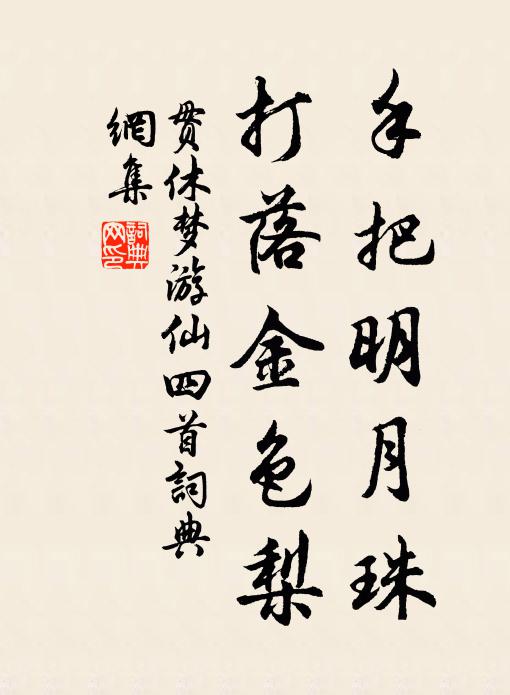 手把明月珠
打落金色梨
贯休梦游仙四首詞典
網集
詞典網印